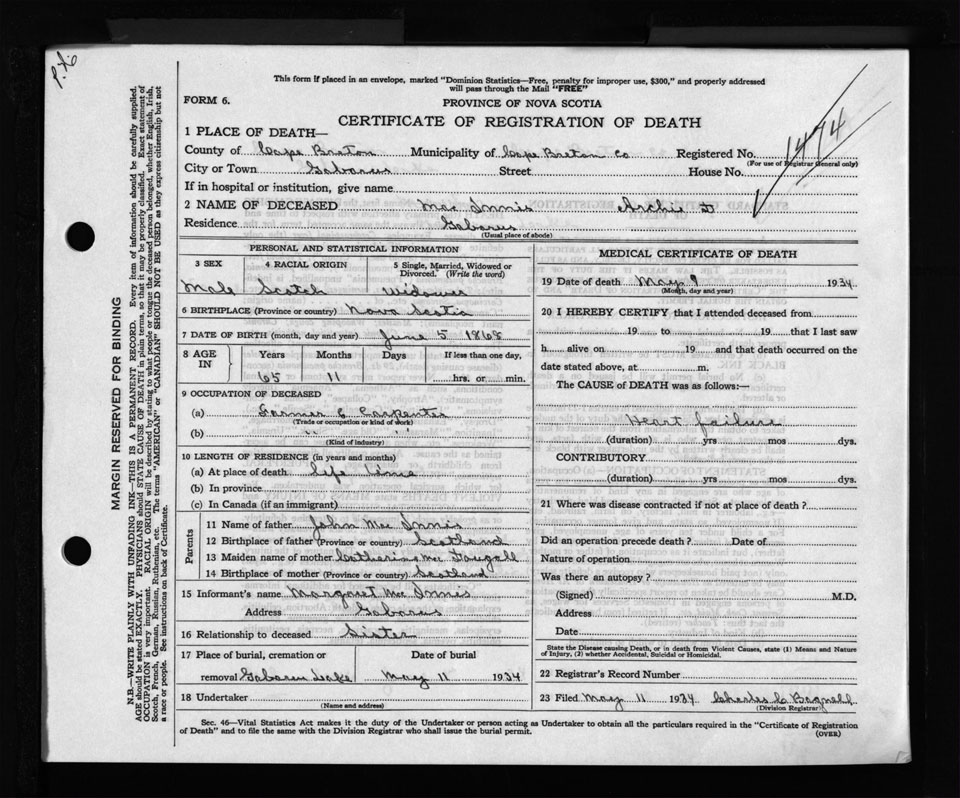 This form if placed in an envelope, marked "Dominion Statistics—Free, penalty for improper use, $300," and properly addressed
will pass through the Mail "FREE"
FORM 6.
PROVINCE OF NOVA SCOTIA
CERTIFICATE OF REGISTRATION OF DEATH
1474
1 PLACE OF DEATH—
County of Cape Breton Municipality of Cape Breton Co Registered No.
(For use of Registrar General only)
City or Town Gabarus Street House No.
If in hospital or institution, give name
2 NAME OF DECEASED Mac Innis Archie D
Residence Gabarus
(Usual place of abode)
PERSONAL AND STATISTICAL INFORMATION
3 SEX 4 RACIAL ORIGIN 5 Single, Married, Widowed or Divorced. (Write the word)
Male Scotch Widower
6 BIRTHPLACE (Province or country) Nova Scotia
7 DATE OF BIRTH (month, day and year) June 5 1868
8 AGE IN Years Months Days If less than one day,
65 11 hrs. or min.
9 OCCUPATION OF DECEASED
(a) Farmer & Carpenter
(Trade or occupation or kind of work)
(b) " "
(Kind of industry)
10 LENGTH OF RESIDENCE (in years and months)
(a) At place of death Life time
(b) In province
(c) In Canada (if an immigrant)
Parents
11 Name of father John Mac Innis
12 Birthplace of father (Province or country) Scotland
13 Maiden name of mother Catherine Mac Dougall
14 Birthplace of mother (Province or country) Scotland
15 Informant's name Margaret Mac Innes
Address Gabarus
16 Relationship to deceased Sister
17 Place of burial, cremation or Date of burial
removal Gabarus Lake May 11 1934
18 Undertaker
(Name and address)
MEDICAL CERTIFICATE OF DEATH
19 Date of death May 9 1934
(Month, day and year)
20 I HEREBY CERTIFY that I attended deceased from
19 to 19 that I last saw
h alive on 19 and that death occurred on the
date stated above, at m.
The CAUSE of DEATH was as follows:—
Heart failure
(duration) yrs mos dys.
CONTRIBUTORY
(duration) yrs mos dys.
21 Where was disease contracted if not at place of death?
Did an operation precede death? Date of
Nature of operation
Was there an autopsy?
(Signed) M.D.
Address
Date
State the Disease causing Death, or in death from Violent Causes, state (1) Means and Nature
of Injury, (2) whether Accidental, Suicidal or Homicidal.
22 Registrar's Record Number
23 Filed May 11 1934 Charles C Bagnell
(Division Registrar)
Sec. 46—Vital Statistics Act makes it the duty of the Undertaker or person acting as Undertaker to obtain all the particulars required in the "Certificate of Registration
of Death" and to file the same with the Division Registrar who shall issue the burial permit.
(OVER)
MARGIN RESERVED FOR BINDING
N.B.—WRITE PLAINLY WITH UNFADING INK—THIS IS A PERMANENT RECORD. Every item of information should be carefully supplied.
AGE should be stated EXACTLY. PHYSICIANS should STATE CAUSE OF DEATH in plain terms, so that it may be properly classified. Exact statement of
OCCUPATION is very important. RACIAL ORIGIN will be described by stating to what people or tongue the deceased person belonged, whether English, Irish,
Scotch, French, German, Russian, Ruthenian, etc. The terms "AMERICAN" or "CANADIAN" SHOULD NOT BE USED as they express citizenship but not
a race or people. See instructions on back of Certificate.